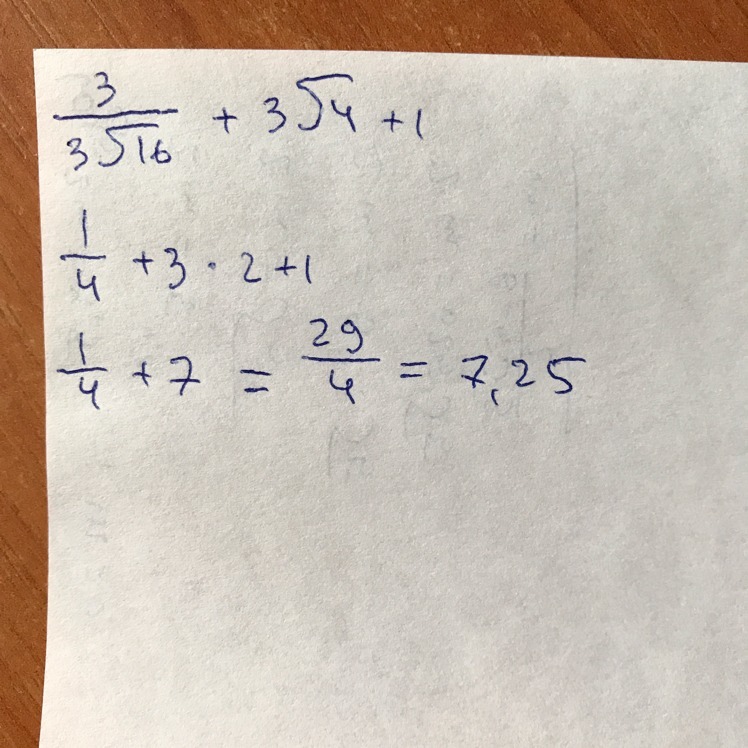 3/3√16 + 3√4 + 1
1/4 + 3 · 2 + 1
1/4 + 7 = 29/4 = 7,25